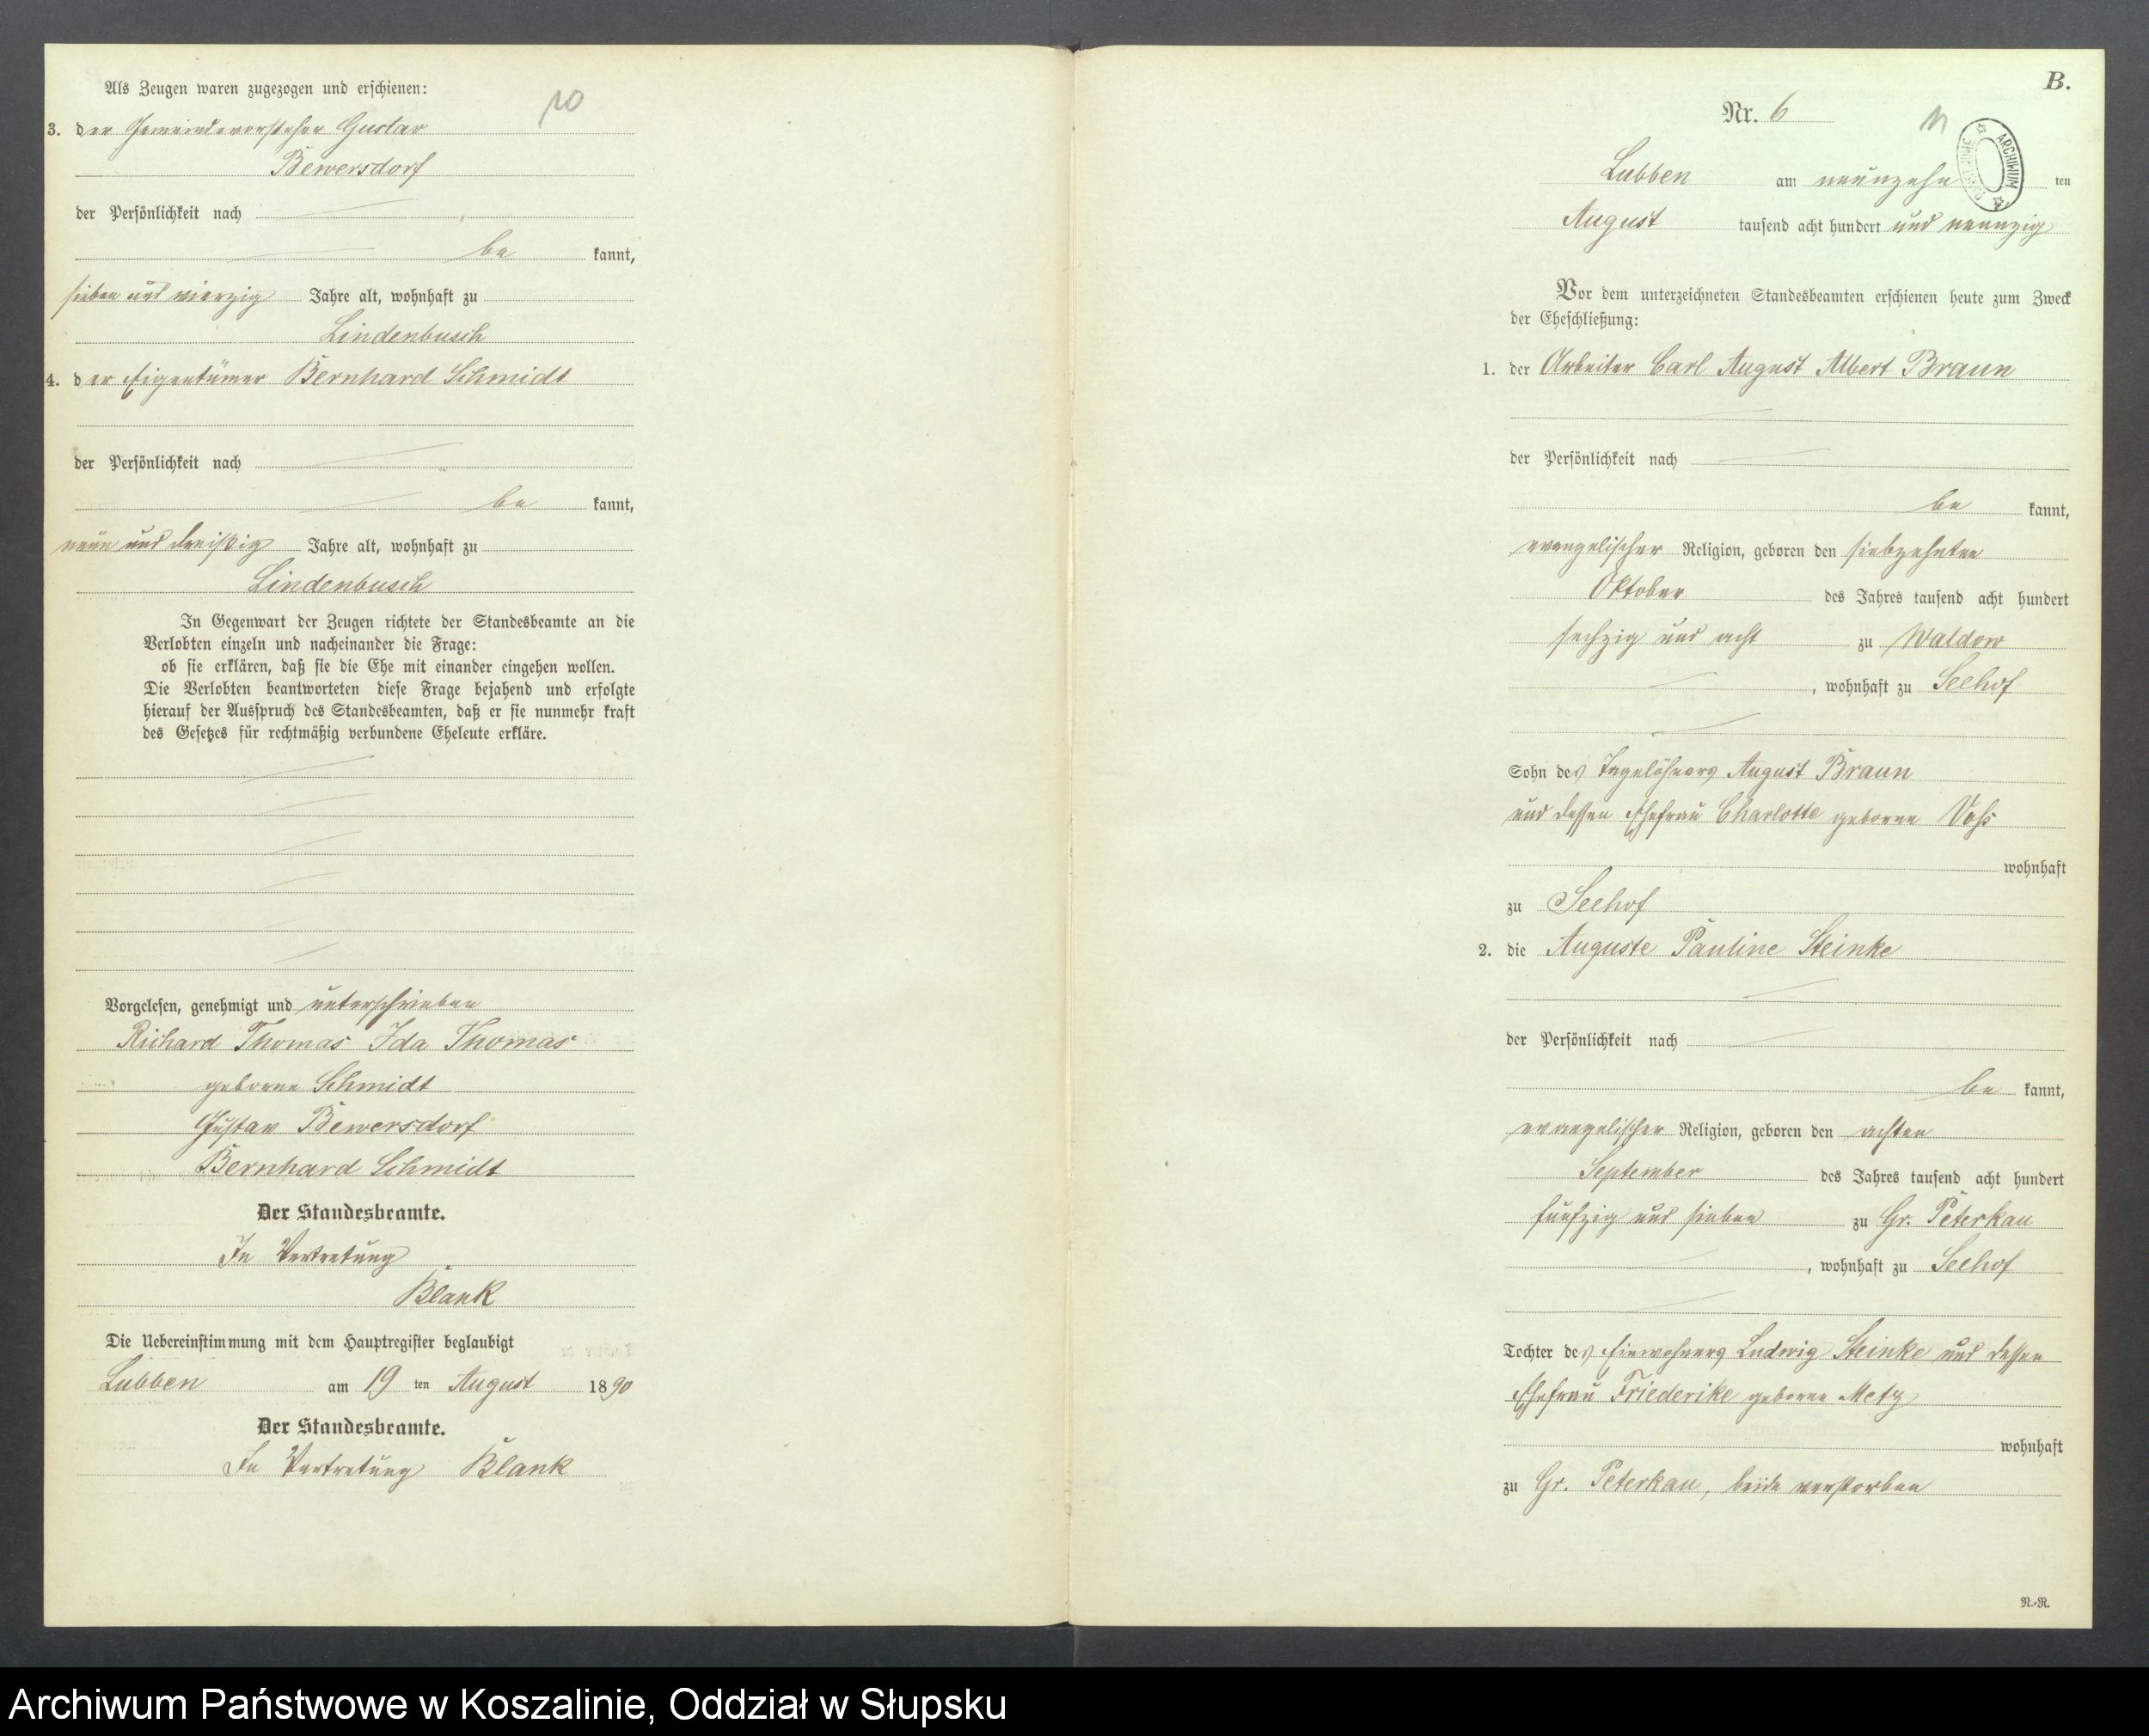 Als Zeugen waren zugezogen und erschienen:
10
3. der Gemeindevorsteher Gustav
Bewersdorf
der Persönlichkeit nach
be kannt,
sieben und vierzig Jahre alt, wohnhaft zu
Lindenbusch
4. der Eigentümer Bernhard Schmidt
der Persönlichkeit nach
be kannt,
neun und dreißig Jahre alt, wohnhaft zu
Lindenbusch
In Gegenwart der Zeugen richtete der Standesbeamte an die
Verlobten einzeln und nacheinander die Frage:
ob sie erklären, daß sie die Ehe mit einander eingehen wollen.
Die Verlobten beantworteten diese Frage bejahend und erfolgte
hierauf der Ausspruch des Standesbeamten, daß er sie nunmehr kraft
des Gesetzes für rechtmäßig verbundene Eheleute erkläre.
Vorgelesen, genehmigt und unterschrieben
Richard Thomas Ida Thomas
geborne Schmidt
Gustav Bewersdorf
Bernhard Schmidt
Der Standesbeamte.
In Vertretung
Blank
Die Uebereinstimmung mit dem Hauptregister beglaubigt
Lubben am 19 ten August 1890
Der Standesbeamte.
In Vertretung Blank
B.
Nr. 6
11
ARCHIWUM
Lubben am neunzehn ten
August tausend acht hundert und neunzig
Vor dem unterzeichneten Standesbeamten erschienen heute zum Zweck
der Eheschließung:
1. der Arbeiter Carl August Albert Braun
der Persönlichkeit nach
be kannt,
evangelischer Religion, geboren den siebzehnten
Oktober des Jahres tausend acht hundert
sechzig und acht zu Waldow
, wohnhaft zu Seehof
Sohn des Tagelöhners August Braun
und dessen Ehefrau Charlotte geborne Voß
wohnhaft
zu Seehof
2. die Auguste Pauline Steinke
der Persönlichkeit nach
be kannt,
evangelischer Religion, geboren den achten
September des Jahres tausend acht hundert
fünfzig und sieben zu Gr. Peterkau
, wohnhaft zu Seehof
Tochter des Einwohners Ludwig Steinke und dessen
Ehefrau Friederike geborne Metz
wohnhaft
zu Gr. Peterkau, beide verstorben
N.-R.
Archiwum Państwowe w Koszalinie, Oddział w Słupsku